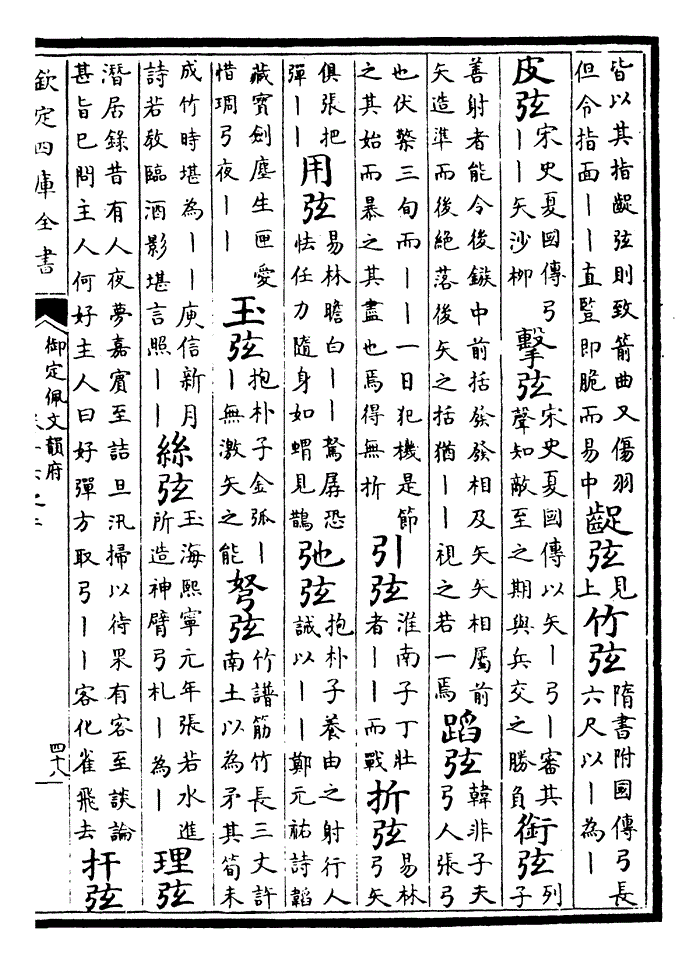 皆以其指齪弦則致箭曲又傷羽但令指面丨丨直豎即脆而易中齪弦見上竹弦隋書附國傳弓長六尺以丨為丨
皮弦宋史夏國傳弓丨丨矢沙柳擊弦宋史夏國傳以矢丨弓丨審其聲知敵至之期與兵交之勝負銜弦列子
善射者能令後鏃中前括發發相及矢矢相屬前矢造準而後絕落後矢之括猶丨丨視之若一焉蹈弦韓非子夫弓人張弓
也伏檠三旬而丨丨一日犯機是節之其始而暴之其盡也焉得無折引弦淮南子丁壯者丨丨而戰折弦易林弓矢
俱張把彈丨丨用弦易林瞻白丨丨駑孱恐怯任力隨身如蝟見鵲弛弦抱朴子養由之射行人誡以丨丨鄭元祐詩韜
藏寶劍塵生匣愛惜琱弓夜丨丨玉弦抱朴子金弧丨丨無激矢之能弩弦竹譜筋竹長三丈許南土以為矛其筍未
成竹時堪為丨丨庾信新月詩若教臨酒影堪言照丨丨絲弦玉海熙寧元年張若水進所造神臂弓札丨為丨理弦
潛居錄昔有人夜夢嘉賓至詰旦汛掃以待果有客至談論甚旨已問主人何好主人曰好彈方取弓丨丨客化雀飛去扞弦
欽定四庫全書
御定佩文韻府
四十八